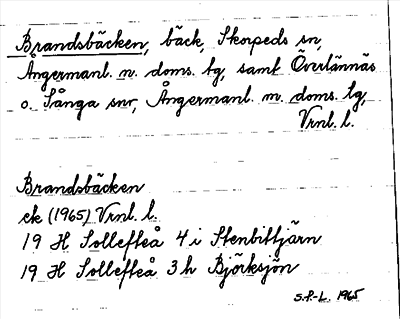 Brandsbäcken, bäck, Skorpeds sn,
Ångermanl. n. doms. lg, samt Överlännäs
o. Sånga snr, Ångermanl. m. doms. lg,
Vrnl. l.
Brandsbäcken
ek (1965) Vrnl. l.
19 H Sollefteå 4 i Stenbittjärn
19 H Sollefteå 3 h Björksjön
S.P-L. 1965